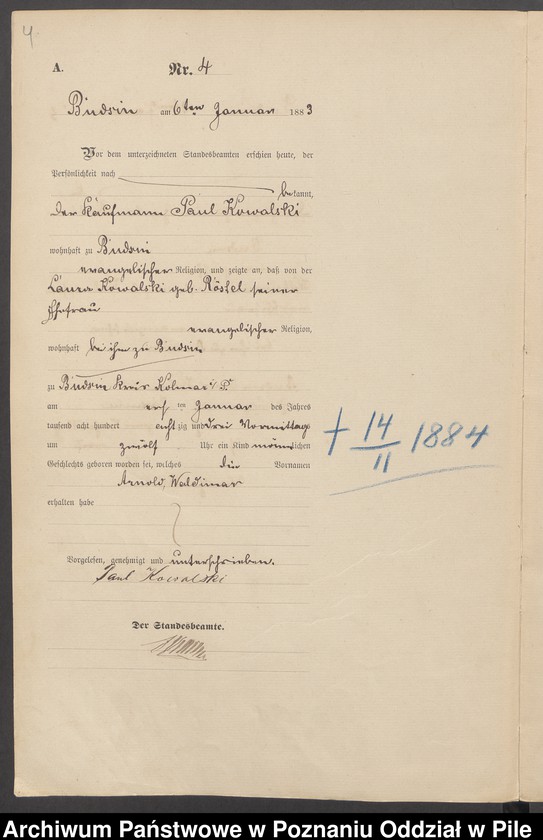 4.
A.
Nr. 4
Budsin am 6ten Januar 1883
Vor dem unterzeichneten Standesbeamten erschien heute, der
Persönlichkeit nach
bekannt,
der Kaufmann Paul Kowalski
wohnhaft zu Budsin
evangelischer Religion, und zeigte an, daß von der
Laura Kowalski geb. Röstel seiner
Ehefrau
evangelischer Religion,
wohnhaft bei ihm zu Budsin
zu Budsin Kreis Kolmar i/ P.
am ersten Januar des Jahres
tausend acht hundert achtzig und drei Vormittag
um zwölf Uhr ein Kind männlichen
Geschlechts geboren worden sei, welches die Vornamen
Arnold, Waldimar
erhalten habe
Vorgelesen, genehmigt und unterschrieben.
Paul Kowalski
Der Standesbeamte.
† 14/11 1884
Archiwum Państwowe w Poznaniu Oddział w Pile